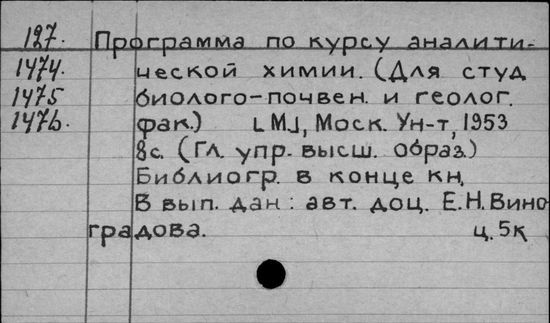 127. Программа по курсу аналити-
1474. ческой химии. (Для студ
1475 биолого-почвен. и геолог.
1476. фак.) [М], Моск. Ун-т, 1953
8с. (Гл. упр. высш. образ.)
Библиогр. в конце кн.
В вып. дан: авт. доц. Е.Н.Вино
градова. ц. 5к